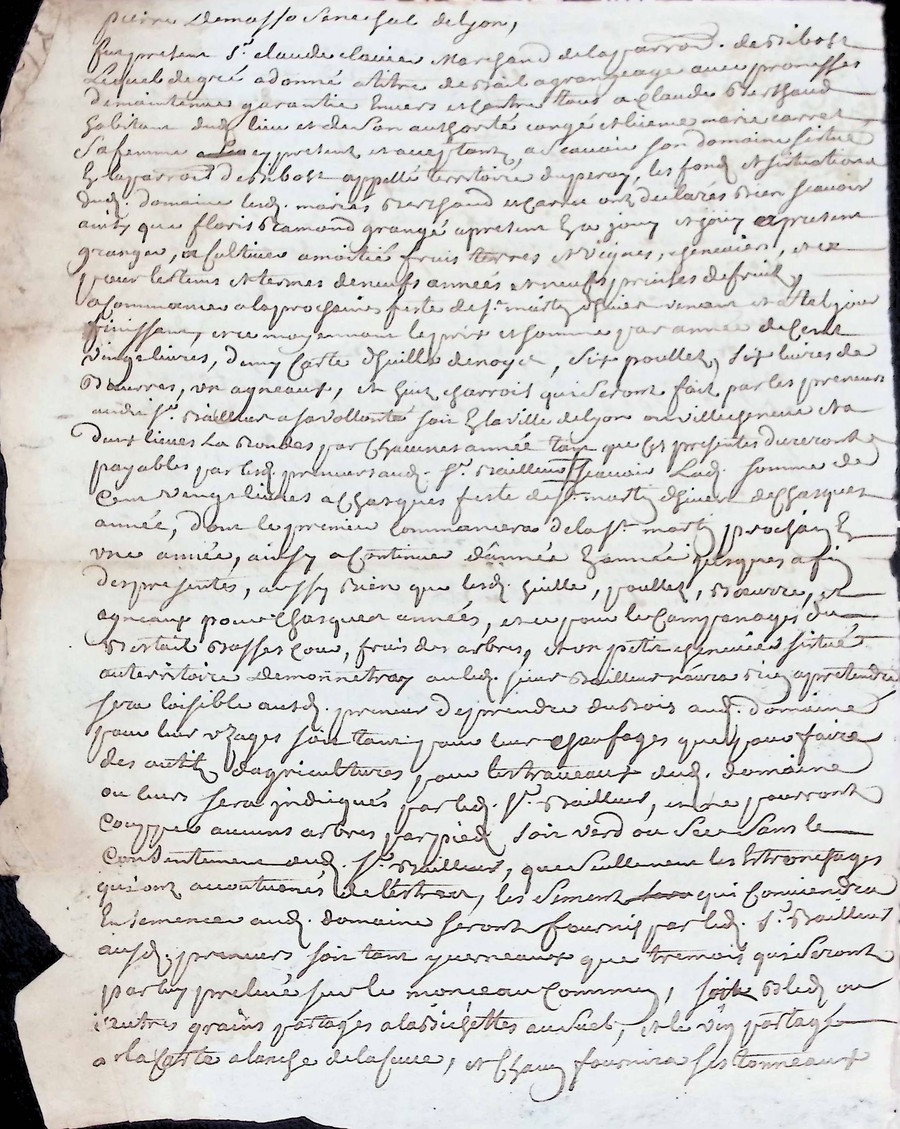 pierre Demasso Senechal de lyon,
fut present Sr. claude clavier Marchand de la parroi. de Bibost
Lequel de gré a donné a titre de Bail a grangeage avec promesses
de maintenue garantie Envers et Contre tous a Claude Berthaud
habitant dud. lieu et de Son authorité congé et licence marie carret
Sa femme icy present et acceptant, a Scavoir son domaine sittué
En la parroit de Bibost appellé territoire du peray, les fond et sistuations
dud. domaine lesd. mariés Berthaud et Carret ont declarés Bien scavoir
ainsy que floris Ramond grangé apresent En a jouy et jouy apresent
granger, et cultive a moitié fruis terres et Vignes, chenevier, et ce
pour les tems et termes de neufs années et neufs prinses de fruit,
a Commance a la prochaine feste de St. martin d'hiver venant et a tel jour
finissant, et ce moyennant le prix et somme par année de Cent
vingt livres, demy Carte d'huille de noyet, Six poullet, Six livres de
Bourres, un agneaux, et huit charroit qui Seront fait par les preneurs
audit Sr. Bailleur a sa vollonté soit En la ville de lyon ou villefrenche et a
deux lieues La Rondes par Chacunes année tant que les presentes dureront
payables par lesd. preneurs aud. Sr. Bailleur Scavoir Lad. somme de
Cent vingt livres a Chaques feste de St. martin d'hiver de Chaques
année, dont le premier commancera de la St. martin prochain En
une année, ainsy a Continue d'année En année jusques a fin
des presentes, aussy Bien que lesd. huille, poullet, Bourre, et
agneaux pour Chaques années, et ce pour le Campanages du
Bestail Basses Cour, fruis des arbres, et un petit chenevier sittué
au territoire Demonnetray auled. sieur Bailleur n'aura Rien a pretendre
sera loisible ausd. preneur de prendre du Bois aud. domaine
pour leur uzages soit tant pour leur Chaufages que pour faire
des outit d'agricultures pour les traveaux dud. domaine
ou leurs sera indiqués par led. Sr. Bailleur, et ne pourront
Couppe aucuns arbres par pied soit verd ou Sec Sans le
Consentement dud. Sr. Bailleur, que Seullement les Estronchages
qui ont accoutumés de l'estres, les Siment qui Conviendra
Ensemence aud. domaine seront fournis par led. Sr. Bailleur
ausd. preneurs soit tant yverneaux que tremois qui Seront
par luy prelevé sur le monceau Commun, soit Bled ou
autres grains partagés a la Bichettes au Sueb, et le vin partagé
a la Carte a lanche de la Cuve, et Chacun fournira ses tonneaux